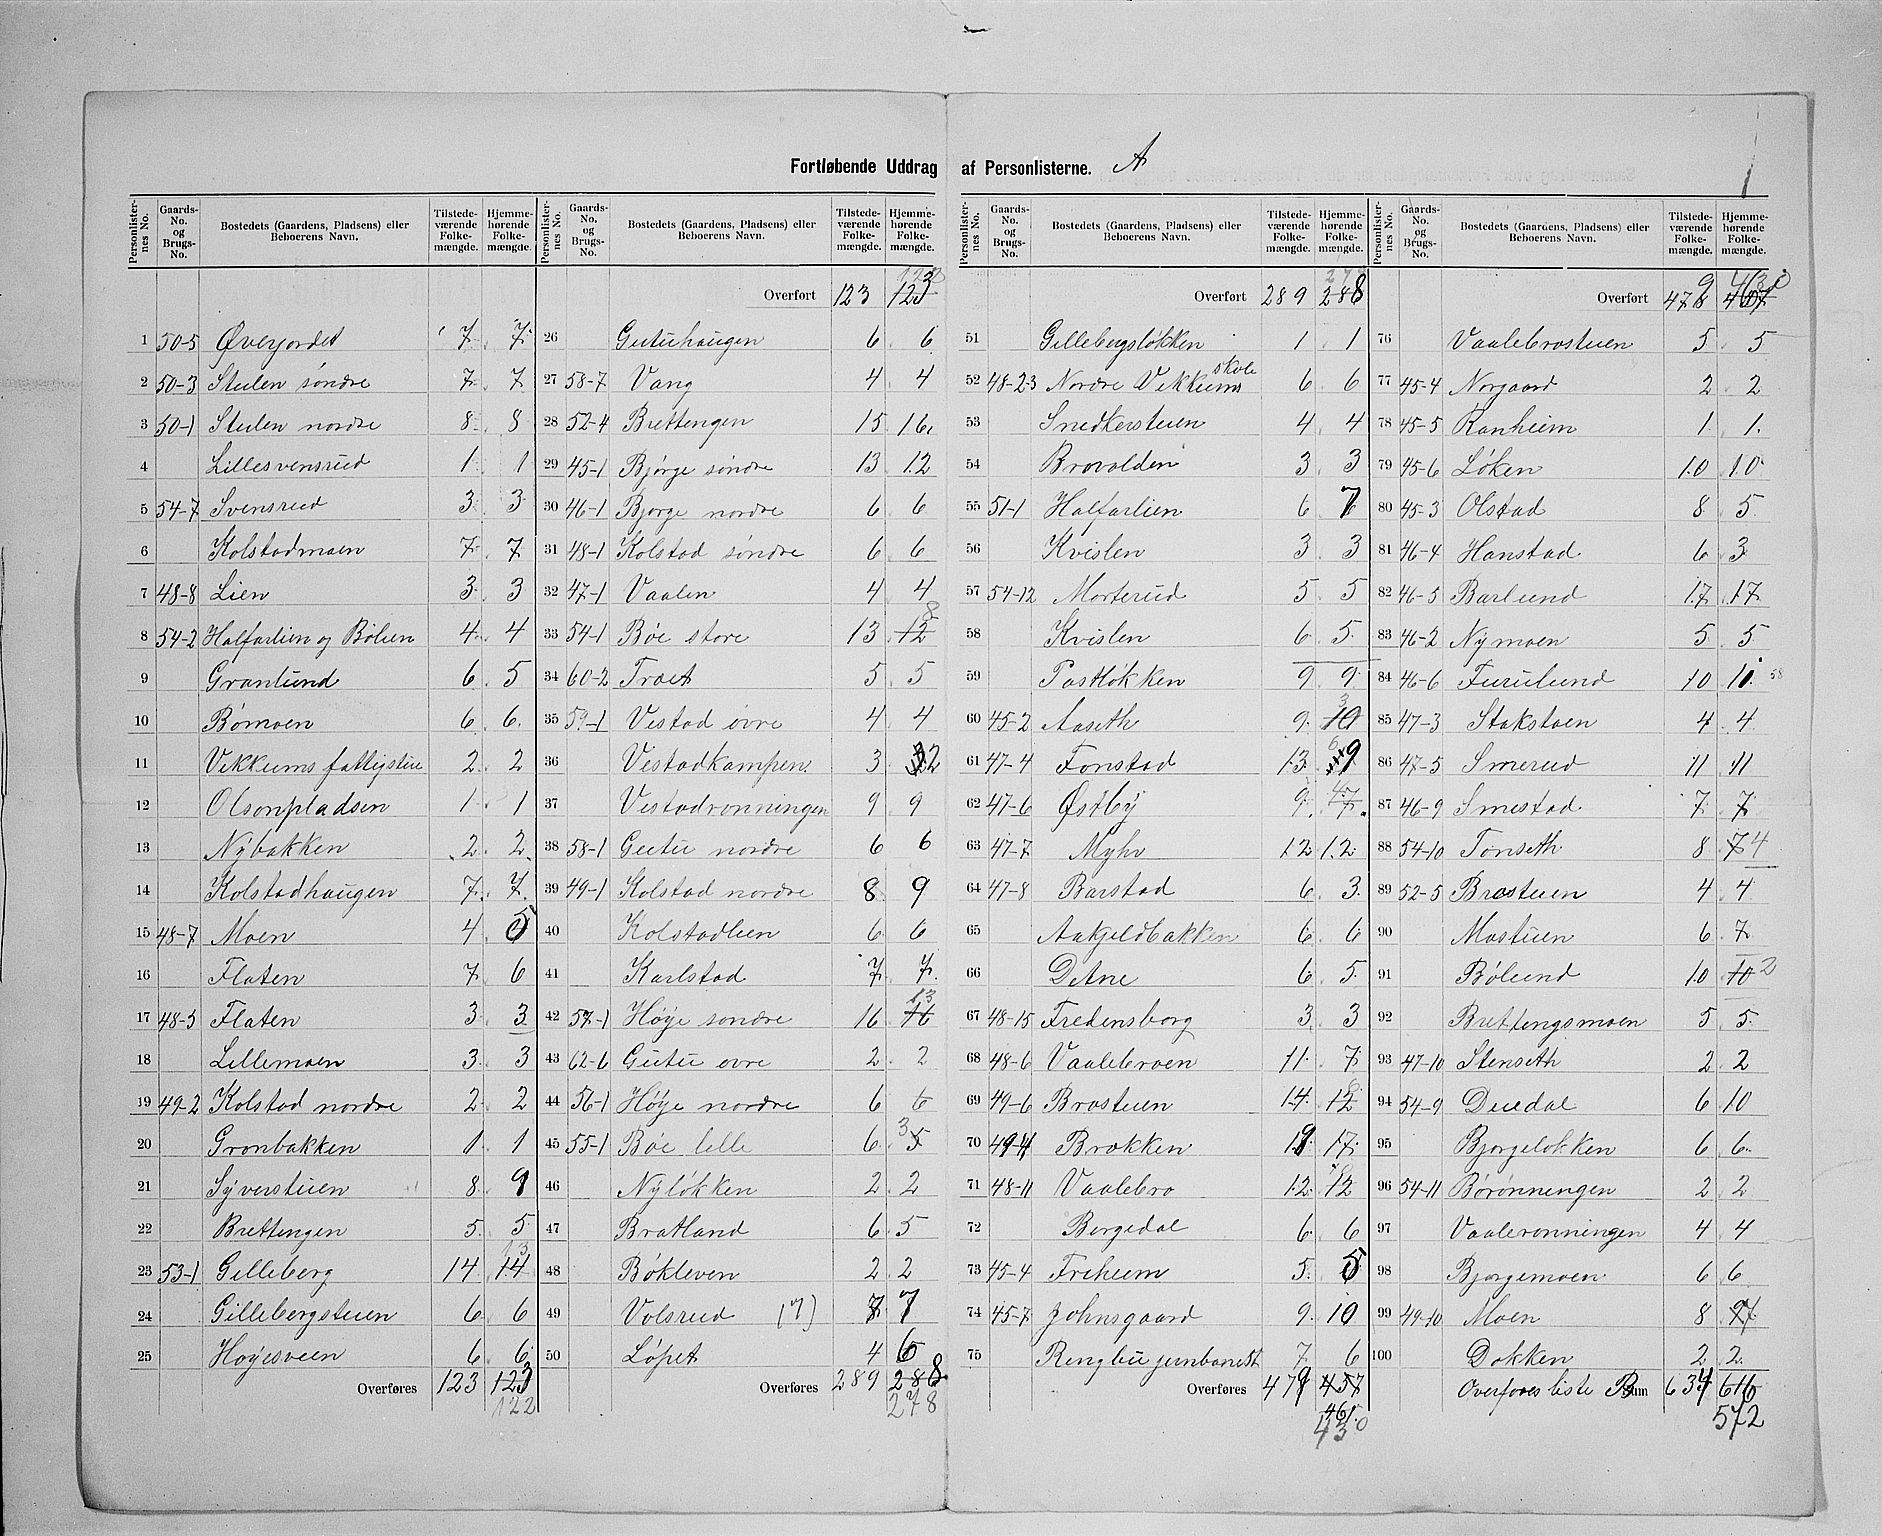 Fortløbende Uddrag af Personlisterne. A
1
Personlisternes No. Gaards-No. og Brugs-No. Bostedets (Gaardens, Pladsens) eller Beboerens Navn. Tilstedeværende Folkemængde. Hjemmehørende Folkemængde.
1 50-5 Øverjordet 7 7
2 50-3 Stulen søndre 7 7
3 50-1 Stulen nordre 8 8
4 Lillesvensrud 1 1
5 54-7 Svensrud 3 3
6 Kolstadmoen 7 7
7 48-8 Lien 3 3
8 54-2 Halfarlien og Bølien 4 4
9 Granlund 6 5
10 Bømoen 6 6
11 Vekkums fattigstue 2 2
12 Olsonpladsen 1 1
13 Nybakken 2 2
14 Kolstadhaugen 7 7
15 48-7 Moen 4 5
16 Flaten 7 6
17 48-5 Flaten 3 3
18 Lillemoen 3 3
19 49-2 Kolstad nordre 2 2
20 Grønbakken 1 1
21 Syverstuen 8 9
22 Brettengen 5 5
23 53-1 Gilleberg 14 14 13
24 Gillebergstuen 6 6
25 Høyesveen 6 6
Overføres 123 123
122
Personlisternes No. Gaards-No. og Brugs-No. Bostedets (Gaardens, Pladsens) eller Beboerens Navn. Tilstedeværende Folkemængde. Hjemmehørende Folkemængde.
Overført 123 123
26 Gutuhaugen 6 6
27 58-7 Vang 4 4
28 52-4 Brettengen 15 16
29 45-1 Bjørge søndre 13 12
30 46-1 Bjørge nordre 6 6
31 48-1 Kolstad søndre 6 6
32 47-1 Vaalen 4 4
33 54-1 Bøe store 13 12 8
34 60-2 Troet 5 5
35 59-1 Vestad øvre 4 4
36 Vestadkampen 3 2
37 Vestadrønningen 9 9
38 58-1 Gutu nordre 6 6
39 49-1 Kolstad nordre 8 9
40 Kolstadlien 6 6
41 Karlstad 7 7
42 57-1 Høye søndre 16 16 13
43 62-6 Gutu øvre 2 2
44 56-1 Høye nordre 6 6
45 55-1 Bøe lille 6 5 3
46 Nyløkken 2 2
47 Bratland 6 5
48 Bøkleven 2 2
49 Volsrud (7) 7 7
50 Løpet 4 6
Overføres 289 288
278
Personlisternes No. Gaards-No. og Brugs-No. Bostedets (Gaardens, Pladsens) eller Beboerens Navn. Tilstedeværende Folkemængde. Hjemmehørende Folkemængde.
Overført 289 288
51 Gillebergsløkken 1 1
52 48-23 Nordre Vekkums skole 6 6
53 Snedkerstuen 4 4
54 Brovolden 3 3
55 51-1 Halfarlien 6 7
56 Kvislen 3 3
57 54-12 Morterud 5 5
58 Kvislen 6 5
59 Postløkken 9 9
60 45-2 Aaseth 9 10 3
61 47-4 Fonstad 13 9
62 47-6 Østby 9 7
63 47-7 Myhr 12 12
64 47-8 Barstad 6 3
65 Aakjeldbakken 6 6
66 Detne 6 5
67 48-15 Fredensborg 3 3
68 48-6 Vaalebroen 11 7
69 49-6 Brostuen 14 12
70 49-4 Brokken 19 17
71 48-11 Vaalebro 12 12
72 Borgedal 6 6
73 45-4 Friheim 5 5
74 45-7 Johnsgaard 9 10
75 Ringbu jernbanest 7 6
Overføres 479 457
461
430
Personlisternes No. Gaards-No. og Brugs-No. Bostedets (Gaardens, Pladsens) eller Beboerens Navn. Tilstedeværende Folkemængde. Hjemmehørende Folkemængde.
Overført 478 457
76 Vaalebrostuen 5 5
77 45-4 Norgaard 2 2
78 45-5 Ranheim 1 1
79 45-6 Løken 10 10
80 45-3 Olstad 8 5
81 46-4 Hanstad 6 3
82 46-5 Barlund 17 17
83 46-2 Nymoen 5 5
84 46-6 Furulund 10 11 58
85 47-3 Stakstoen 4 4
86 47-5 Smerud 11 11
87 46-9 Smestad 7 7
88 54-10 Tonseth 8 7 4
89 52-5 Brostuen 4 4
90 Mostuen 6 7
91 Bølund 10 10 2
92 Brettingsmoen 5 5
93 47-10 Stenseth 2 2
94 54-9 Duedal 6 10
95 Bjørgeløkken 6 6
96 54-11 Børønningen 2 2
97 Vaalerønningen 4 4
98 Bjørgemoen 6 6
99 49-10 Moen 8 7
100 Dokken 2 2
Overføres liste B 634 616
572